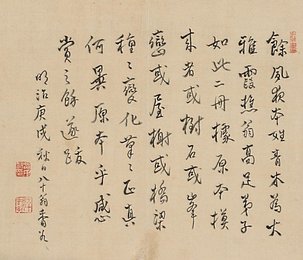 餘夙欽本姓音本為大
雅霞樵翁高足弟子
如此二冊據原本摸
來者或樹石或峯
巒或屋榭或橋梁
種々變化筆々正真
何異原本乎感
賞之餘遂跋
明治庚戌秋日八十翁